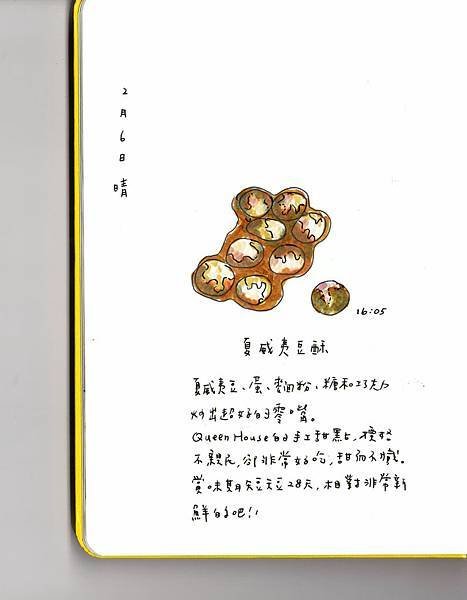 2月6日 晴
16:05
夏威夷豆酥
夏威夷豆、蛋、麵粉、糖和巧克力
炒出超好的零嘴。
Queen House的手工甜點,價格
不親民,卻非常好吃,甜而不膩。
賞味期短短28天,相對非常新
鮮的吧!!